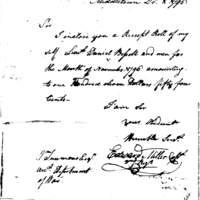 Middletown Dec. 8. 1796
Sir
I inclose you a Receipt Roll of my
Self Lieut Daniel Bissell and men for
the Month of November 1796 amounting
to one Hundred seven Dollars fifty four
Cents.
I am Sir
Your Obedient
Humble Servt
Edward Miller Capt
W Simmons Esqr
Department
of War